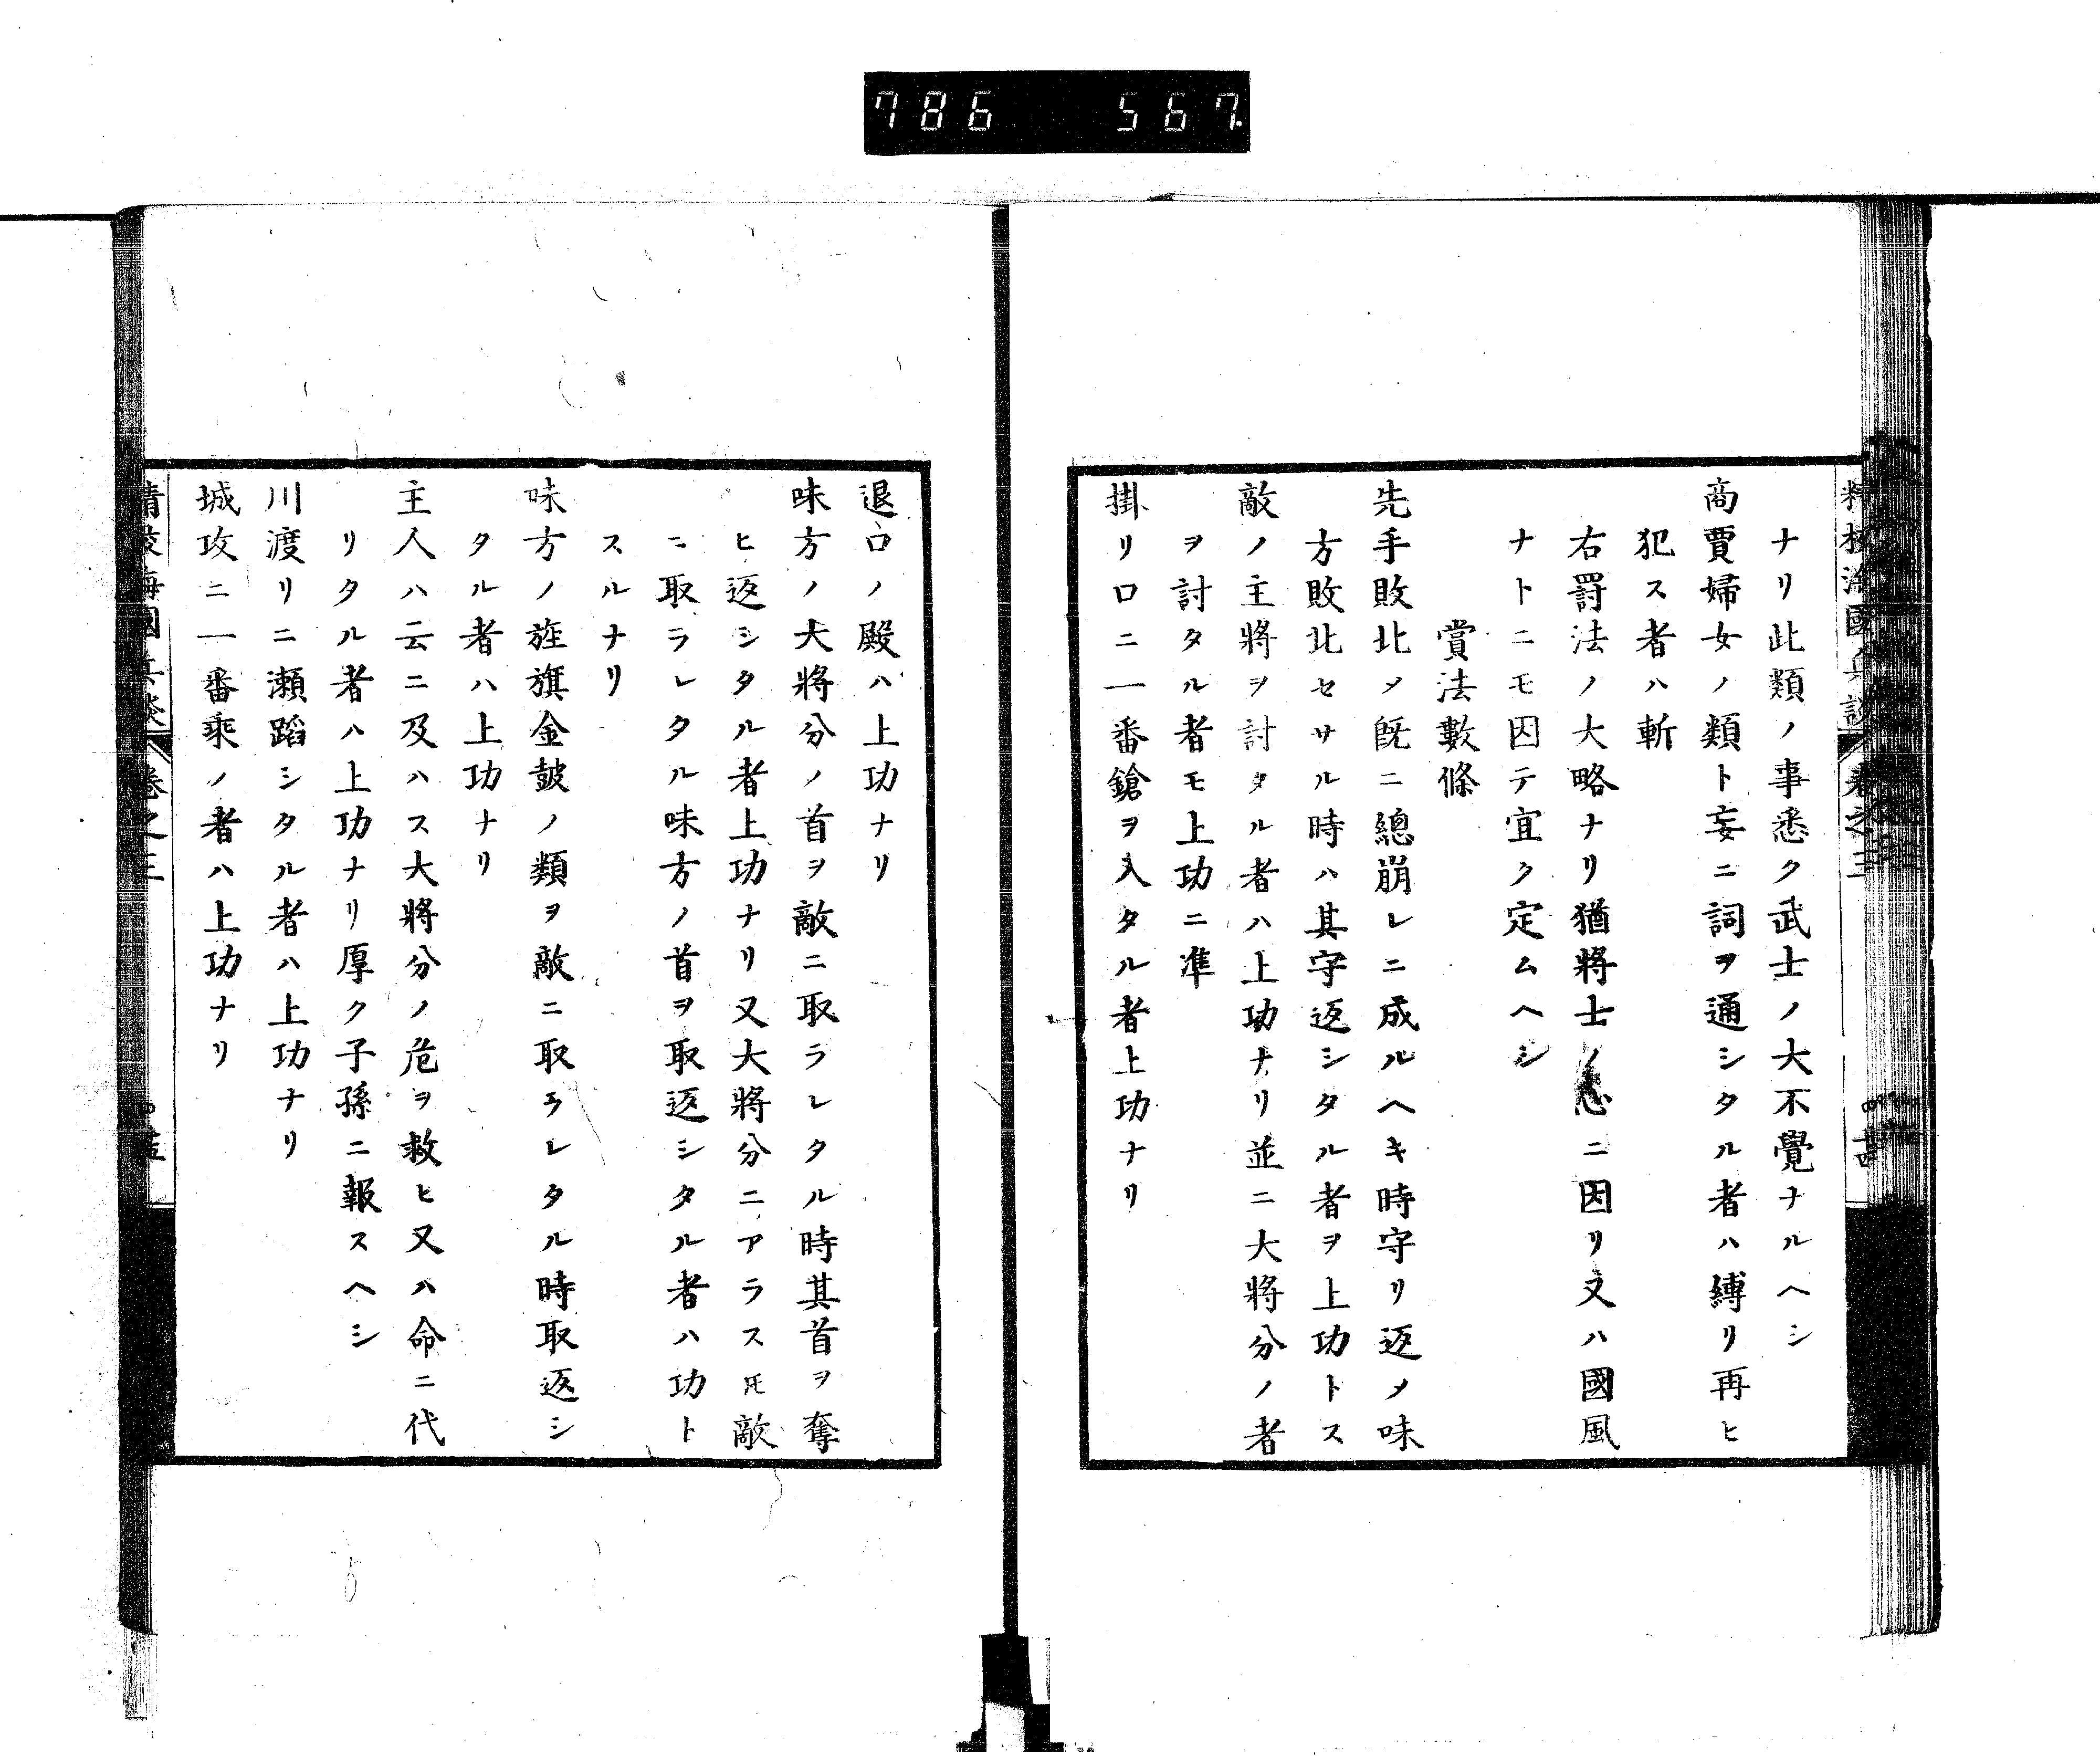 786 567
ナリ此類ノ事悉ク武士ノ大不覺ナルヘシ
商賈婦女ノ類ト妄ニ詞ヲ通シタル者ハ縛リ再ヒ
犯ス者ハ斬
右罸法ノ大略ナリ猶將士ノ心ニ因リ又ハ國風
ナトニモ因テ宜ク定ムヘシ
賞法數條
先手敗北〆既ニ總崩レニ成ルヘキ時守リ返〆味
方敗北セサル時ハ其守返シタル者ヲ上功トス
敵ノ主將ヲ討タル者ハ上功ナリ並ニ大將分ノ者
ヲ討タル者モ上功ニ準
掛リ口ニ一番鎗ヲ入タル者上功ナリ
退口ノ殿ハ上功ナリ
味方ノ大將分ノ首ヲ敵ニ取ラレタル時其首ヲ奪
ヒ返シタル者上功ナリ又大將分ニアラス𪜈敵
ニ取ラレタル味方ノ首ヲ取返シタル者ハ功ト
スルナリ
味方ノ旌旗金鼓ノ類ヲ敵ニ取ラレタル時取返シ
タル者ハ上功ナリ
主人ハ云ニ及ハス大將分ノ危ヲ救ヒ又ハ命ニ代
リタル者ハ上功ナリ厚ク子孫ニ報スヘシ
川渡リニ瀬蹈シタル者ハ上功ナリ
城攻ニ一番乘ノ者ハ上功ナリ
海國兵談 卷之三